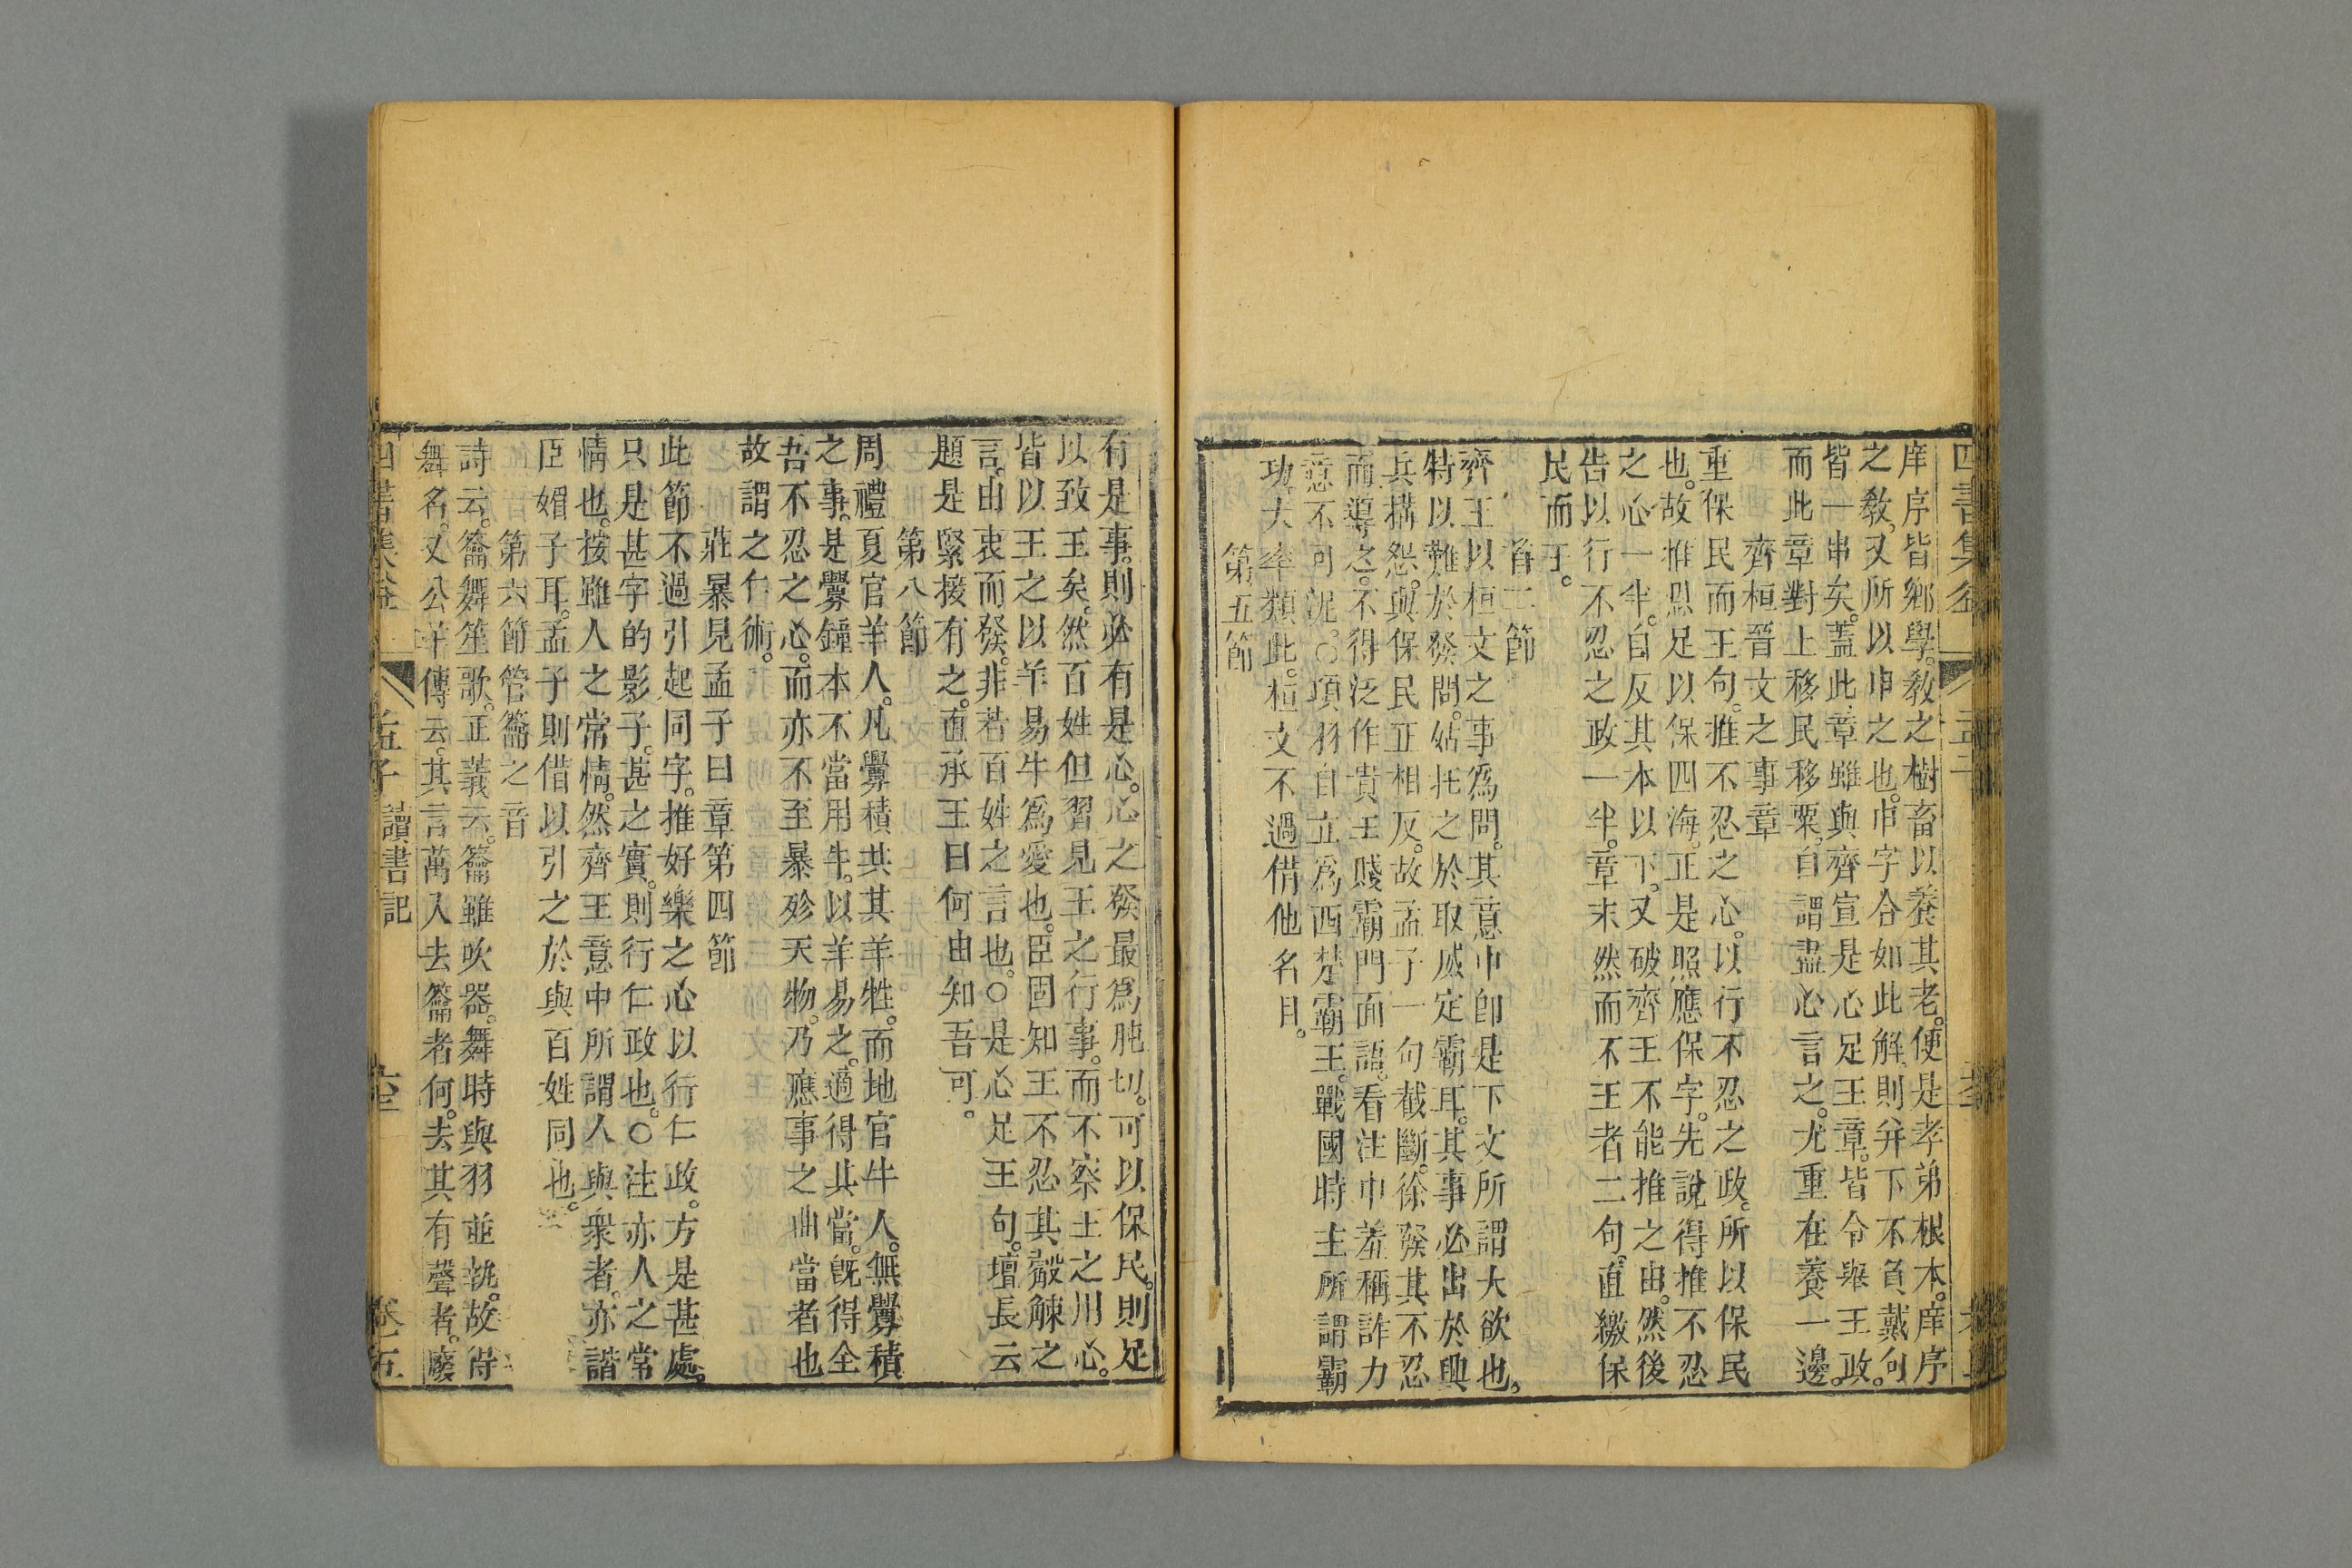 庠序皆鄉學。教之樹畜以養其老。便是孝弟根本。庠序
之教。又所以申之也。申字合如此解。則并下不負戴句。
皆一串矣。蓋此章雖與齊宣是心足王章。皆令舉王政。
而此章對上移民移粟。自謂盡心言之。尤重在養一邊。
齊桓晉文之事章
重保民而王句。推不忍之心。以行不忍之政。所以保民
也。故推恩足以保四海。正是照應保字。先說得推不忍
之心一半。自反其本以下。又破齊王不能推之由。然後
告以行不忍之政一半。章末然而不王者二句。直繳保
民而王。
首二節
齊王以桓文之事為問。其意中卽是下文所謂大欲也。
特以難於發問。姑托之於取威定霸耳。其事必出於興
兵搆怨。與保民正相反。故孟子一句截斷。徐發其不忍
而導之。不得泛作貴王賤霸門面語。看注中羞稱詐力
意不可泥。○項羽自立為西楚霸王。戰國時主所謂霸
功大率類此。桓文不過借他名目。
第五節
有是事。則必有是心。心之發最為肫切。可以保民。則足
以致王矣。然百姓但習見王之行事。而不察王之用心。
皆以王之以羊易牛為愛也。臣固知王不忍其觳觫之
言。由衷而發。非若百姓之言也。○是心足王句。壇長云
題是緊接有之。直承王曰何由知吾可。
第八節
周禮夏官羊人。凡釁積共其羊牲。而地官牛人。無釁積
之事。是釁鐘本不當用牛。以羊易之。適得其當。旣得全
吾不忍之心。而亦不至暴殄天物。乃應事之曲當者也
故謂之仁術。
莊暴見孟子曰章第四節
此節不過引起同字。推好樂之心以行仁政。方是甚處。
只是甚字的影子。甚之實。則行仁政也。○注亦人之常
情也。按雖人之常情。然齊王意中所謂人與衆者。亦諧
臣媚子耳。孟子則借以引之於與百姓同也。
第六節管籥之音
詩云。籥舞笙歌。正義云。籥雖吹器。舞時與羽並執。故得
舞名。文公羊傳云。其言萬入去籥者何。去其有聲者。廢
孟子 讀書記